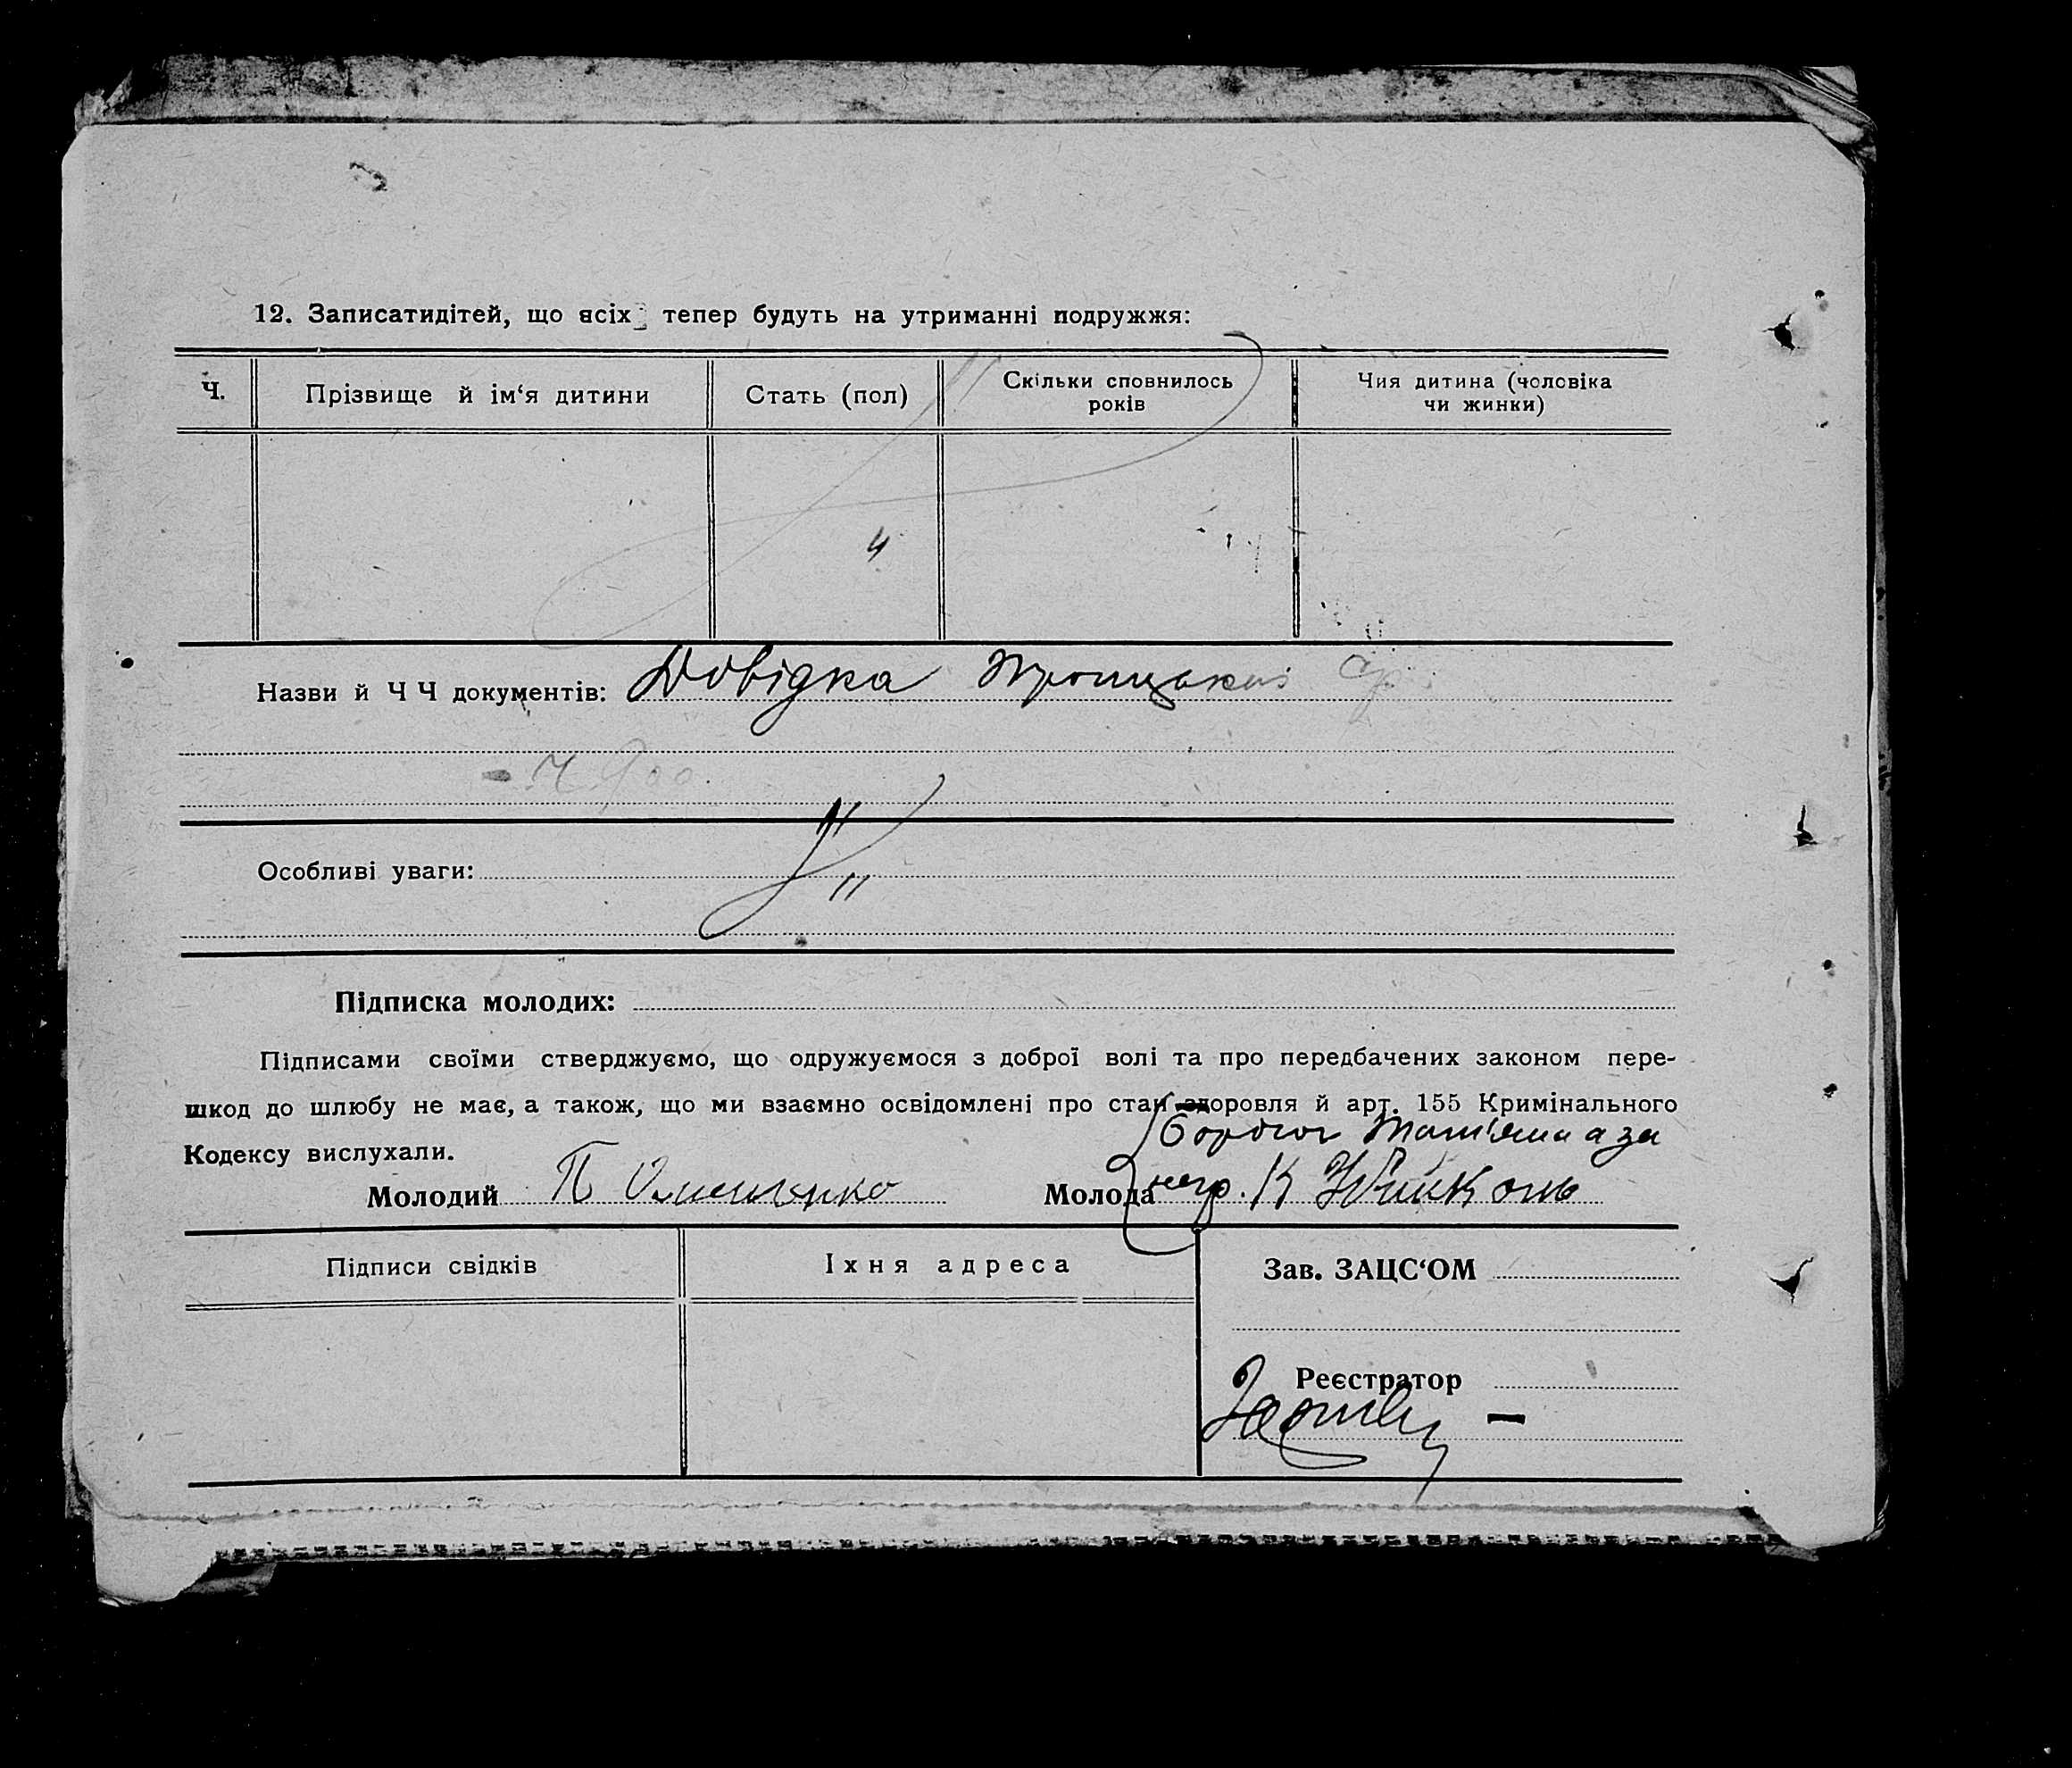 12. Записатидітей, що всіх тепер будуть на утриманні подружжя:
Ч.
Прізвище й ім‘я дитини
Стать (пол)
Скільки сповнилось
років
Чия дитина (чоловіка
чи жинки)
Назви й Ч Ч документів: Довідка Троицької Ср.
Ч 900.
Особливі уваги:
Підписка молодих:
Підписами своїми стверджуємо, що одружуємося з доброї волі та про передбачених законом пере-
шкод до шлюбу не має, а також, що ми взаємно освідомлені про стан здоровля й арт. 155 Кримінального
Кодексу вислухали.
а за
Молодий П
Молода негр. К
Підписи свідків
Їхня адреса
Зав. ЗАЦС‘ОМ
Реєстратор